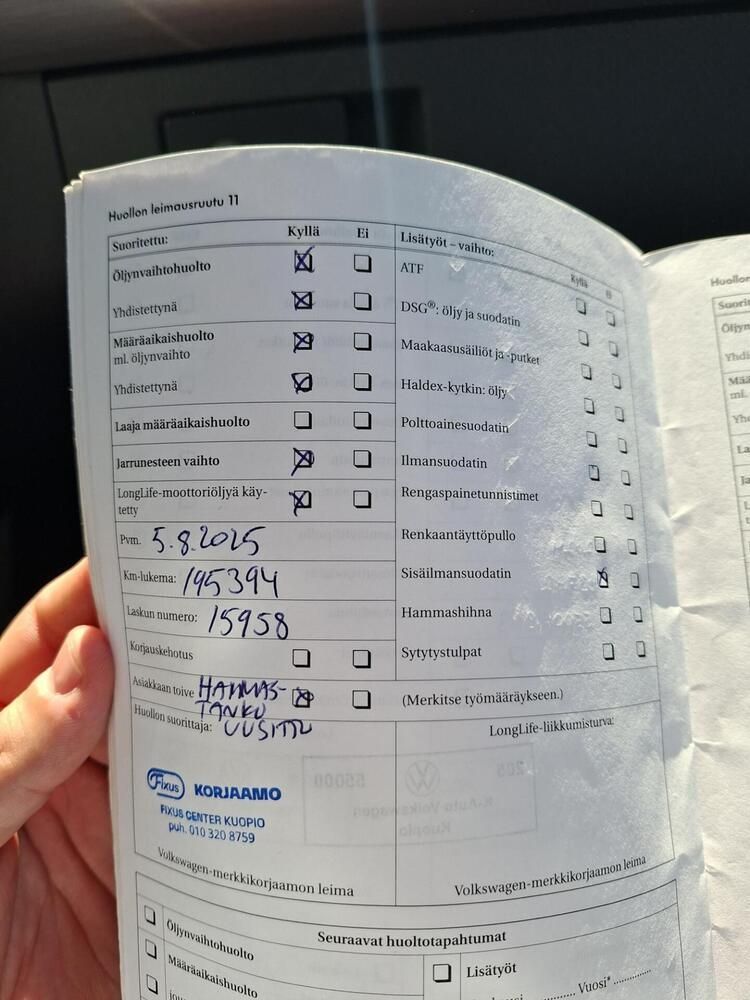 Huollon leimausruutu 11
Suoritettu: Kyllä Ei
Öljynvaihtohuolto
Yhdistettynä
Määräaikaishuolto
ml. öljynvaihto
Yhdistettynä
Laaja määräaikaishuolto
Jarrunesteen vaihto
LongLife-moottoriöljyä käy-
tetty
Pvm. 5.8.2025
Km-lukema: 195394
Laskun numero: 15958
Korjauskehotus
Asiakkaan toive HAMMAS-
TANKO
Huollon suorittaja: UUSITTU
Fixus KORJAAMO
FIXUS CENTER KUOPIO
puh. 010 320 8759
Volkswagen-merkkikorjaamon leima
Lisätyöt – vaihto:
Kyllä Ei
ATF
DSG®: öljy ja suodatin
Maakaasusäiliöt ja -putket
Haldex-kytkin: öljy
Polttoainesuodatin
Ilmansuodatin
Rengaspainetunnistimet
Renkaantäyttöpullo
Sisäilmansuodatin
Hammashihna
Sytytystulpat
(Merkitse työmääräykseen.)
LongLife-liikkumisturva:
Volkswagen-merkkikorjaamon leima
Seuraavat huoltotapahtumat
Öljynvaihtohuolto
Määräaikaishuolto
Lisätyöt
Vuosi*